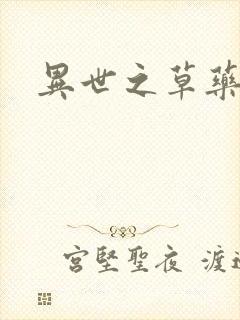 異世之草藥
宮堅聖夜 渡